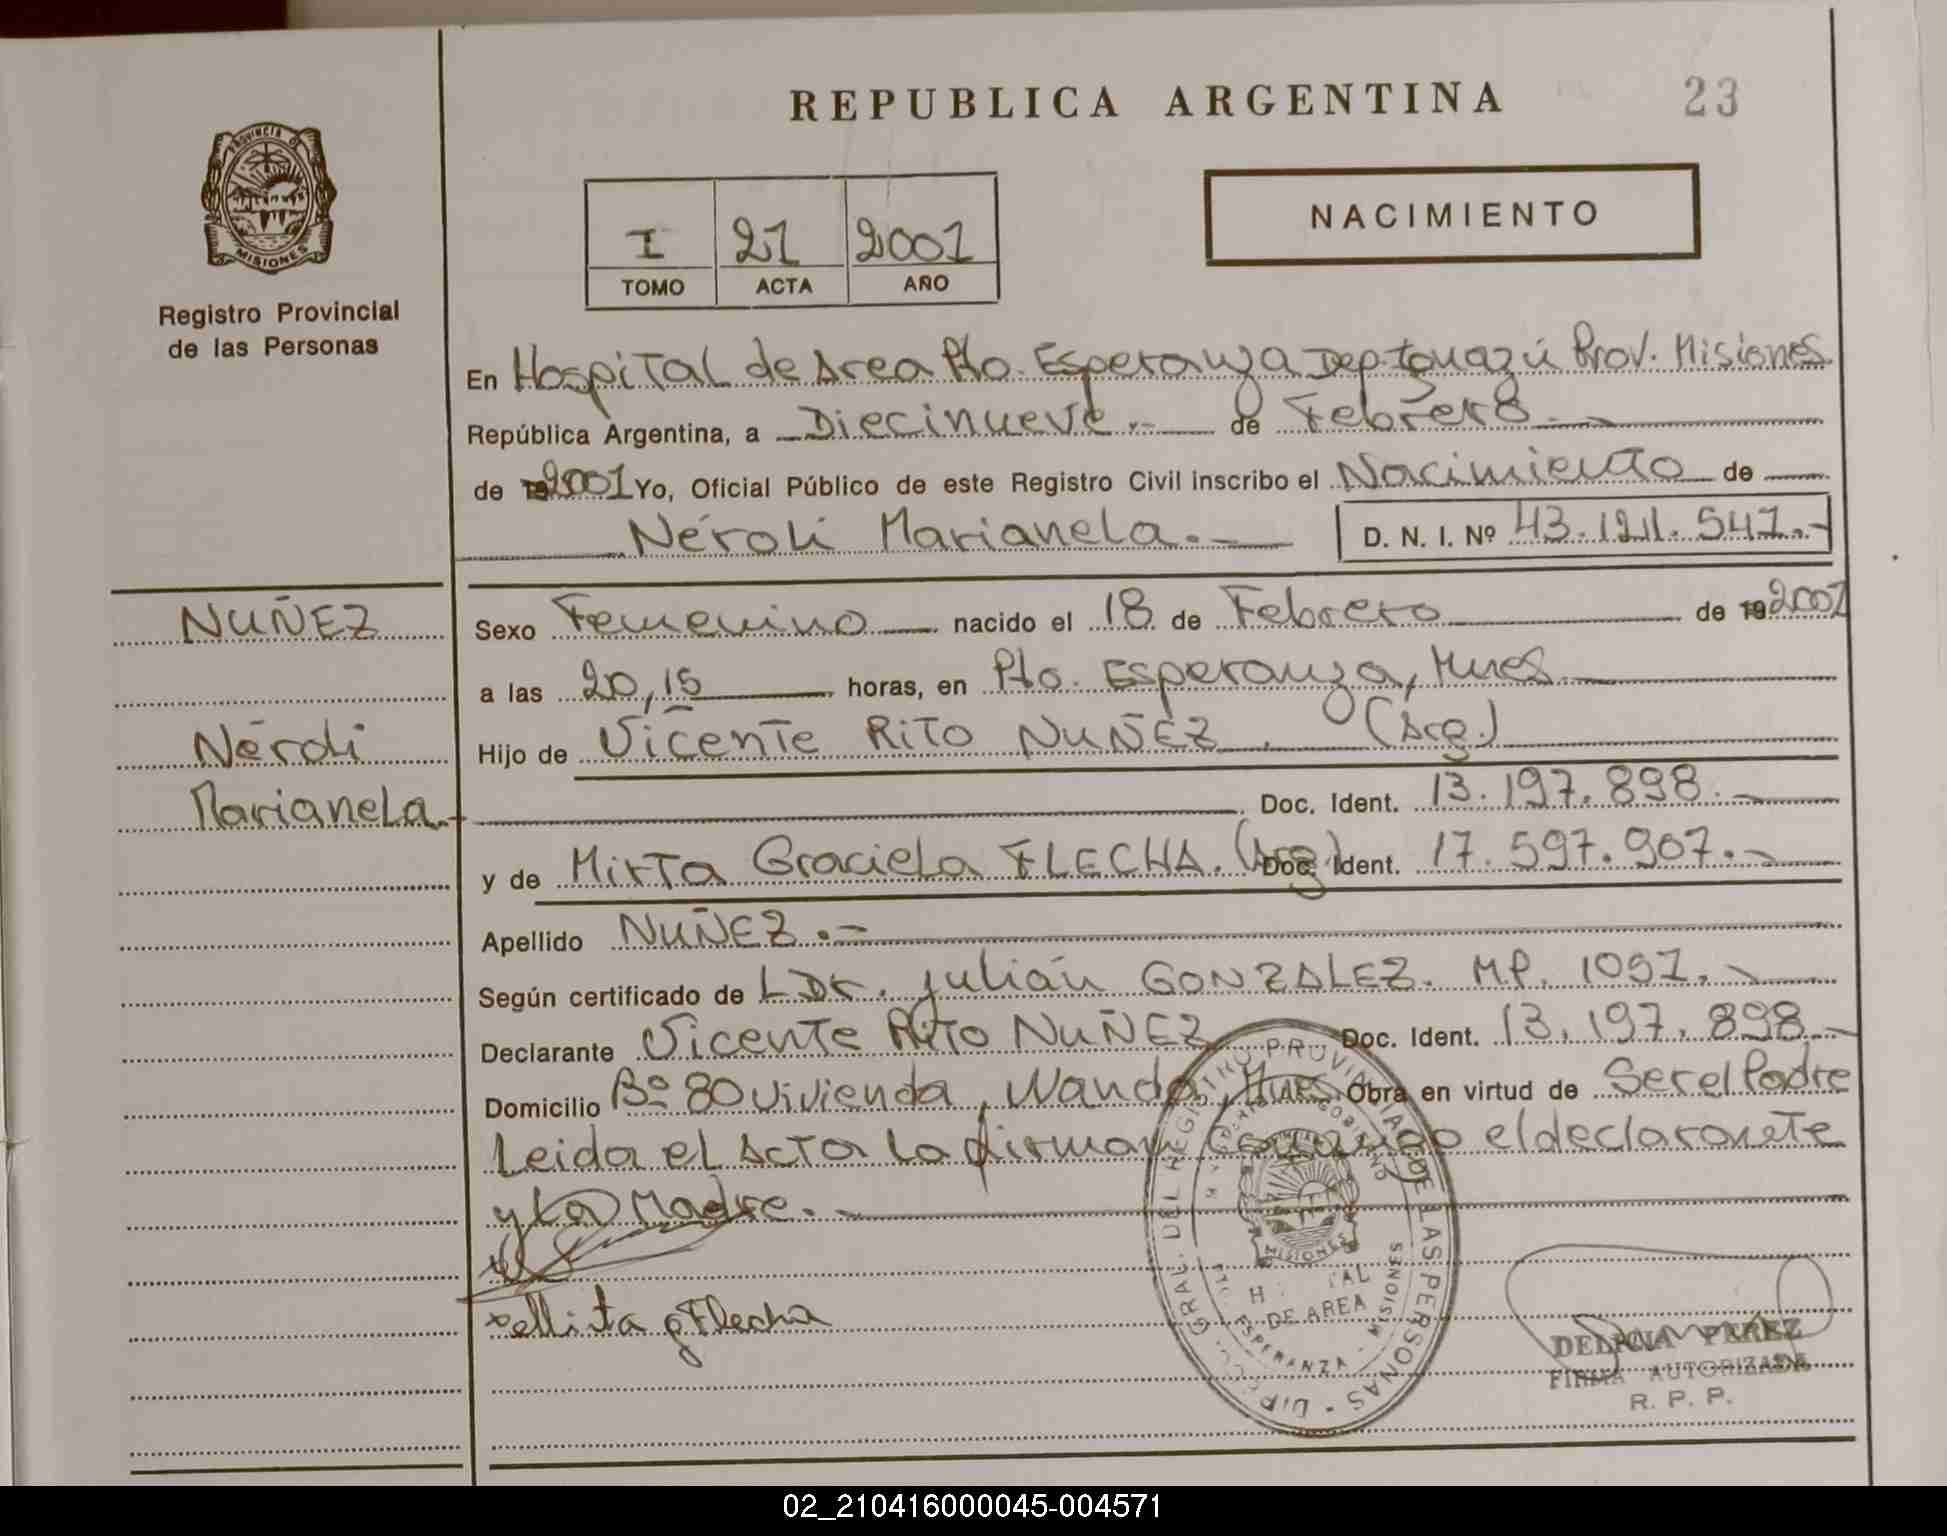 REPUBLICA ARGENTINA
23
PROVINCIA DE
MISIONES
Registro Provincial
de las Personas
I 21 2001
TOMO ACTA AÑO
NACIMIENTO
En Hospital de Area Pto. Esperanza Dep. Iguazú Prov. Misiones
República Argentina, a Diecinueve.- de Febrero
de 2001 Yo, Oficial Público de este Registro Civil inscribo el Nacimiento de
Néroli Marianela.- D. N. I. Nº 43.121.547.-
NUÑEZ
Néroli
Marianela.-
Sexo Femenino nacido el 18 de Febrero de 19 2001
a las 20,15 horas, en Pto. Esperanza, Mnes
Hijo de Vicente Rito NUÑEZ. (Arg.)
Doc. Ident. 13.197.898.-
y de Mirta Graciela FLECHA. (Arg) Doc. Ident. 17.597.907.-
Apellido NUÑEZ.-
Según certificado de L Dr. Julián GONZALEZ. MP. 1097.-
Declarante Vicente Rito NUÑEZ Doc. Ident. 13.197.898.-
Domicilio Bº 80 Vivienda, Wanda, Mnes Obra en virtud de Ser el Padre
Leida el Acta la firman conmigo el declaranete
y La Madre.-
G Flecha
DIREC. GRAL. DEL REGISTRO PROVINCIAL DE LAS PERSONAS
MISIONES
DE AREA
PTO. ESPERANZA - MISIONES
DELICIA PEREZ
FIRMA AUTORIZADA
R. P. P.
02_210416000045-004571